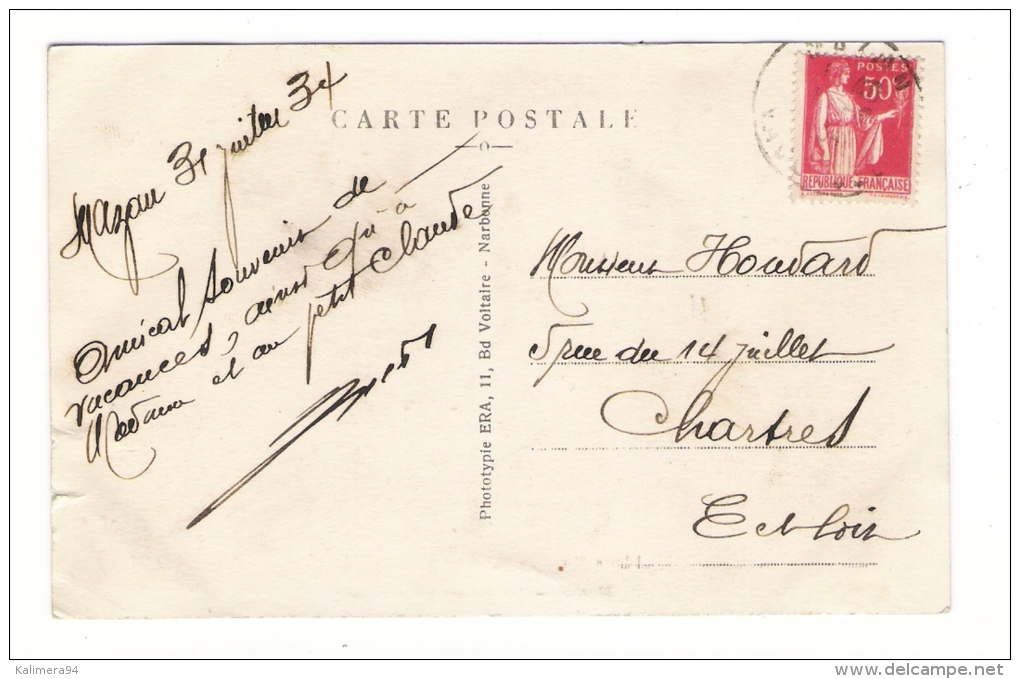 Mazan 31 juillet 34
CARTE POSTALE
Amical souvenir de
vacances, ainsi qu'à
Madame et au petit Claude
Phototypie ERA, 11, Bd Voltaire - Narbonne
POSTES
50c
REPUBLIQUE FRANÇAISE
Monsieur Houdard
5 rue du 14 juillet
Chartres
E et Loir
Kalimera94
www.delcampe.net